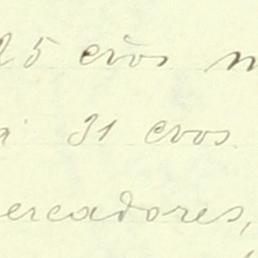 25 cvos m
a 31 cvos.
ercadores,